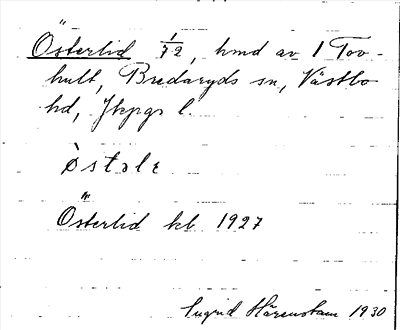 Österlid 1/72, hmd av 1 Tov-
hult, Bredaryds sn, Västbo
hd, Jkpgs l.
østəlɛ
Österlid kb 1927
Ingrid Härenstam 1930